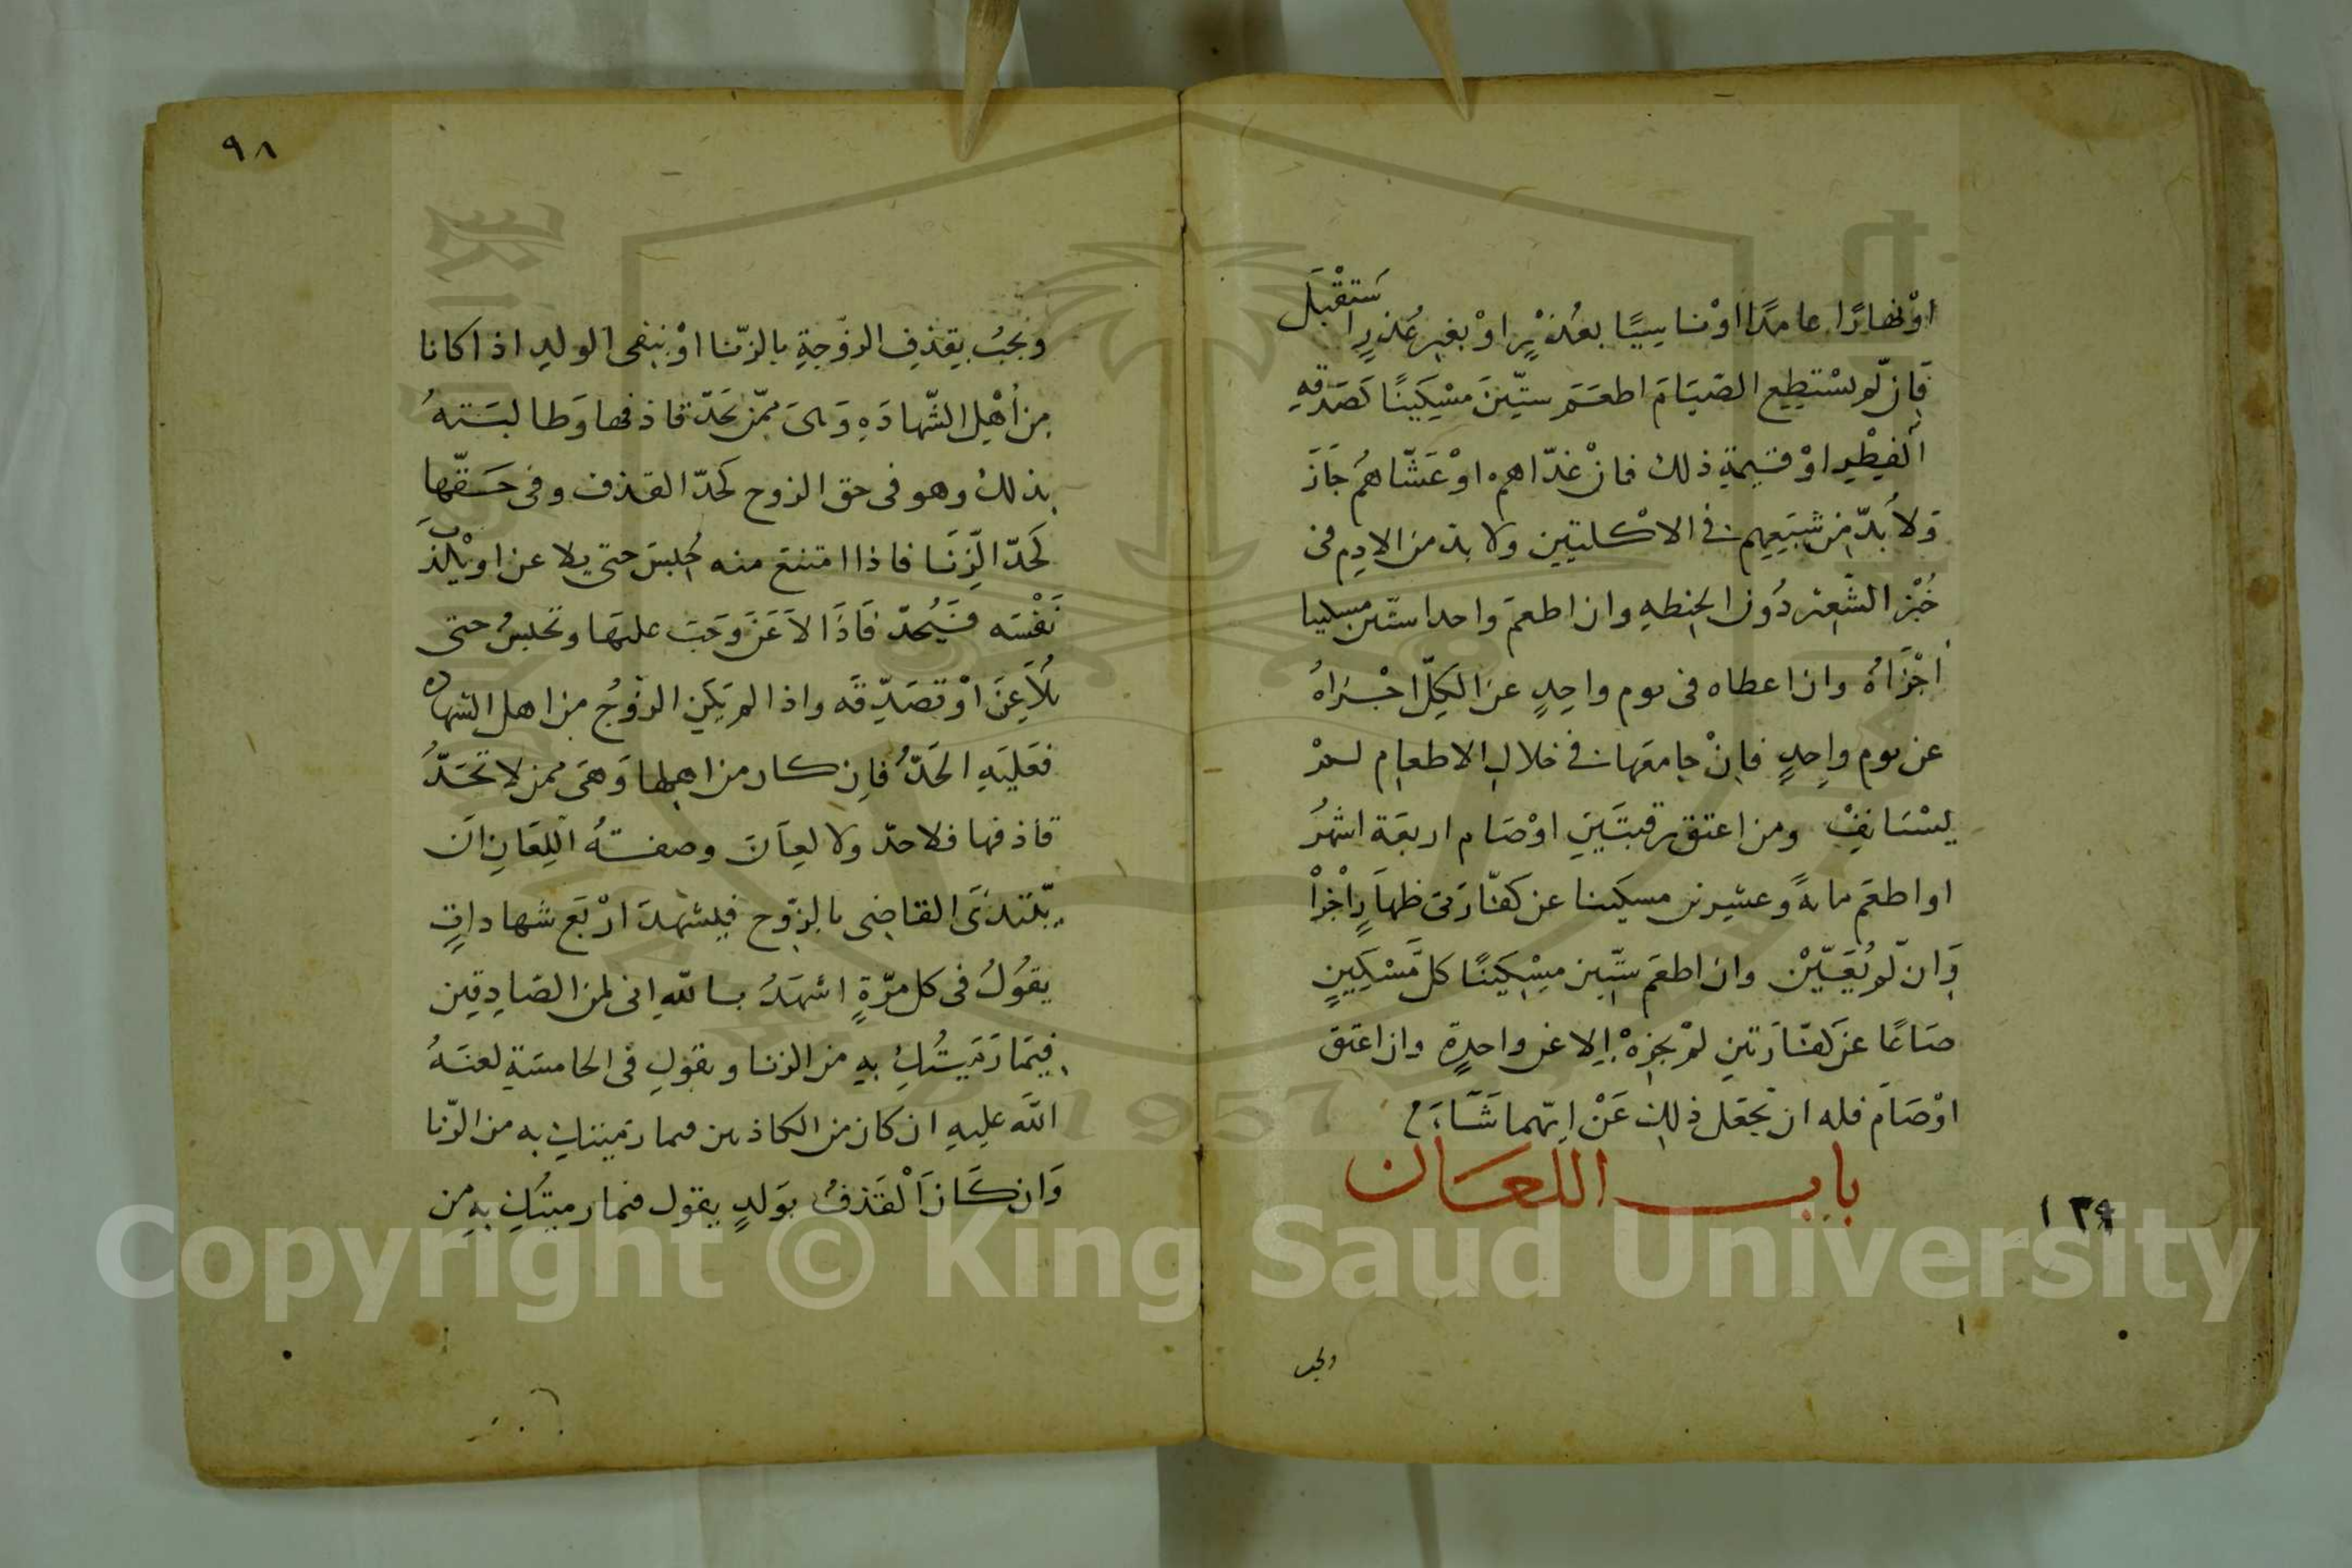 اوْ نهارًا عامدًا اوْ ناسيًا بعُذْرٍ اوْ بغير عُذرٍ استقْبَل
فَإن لّم يسْتطِيع الصّيَامَ اطعَمَ ستّينَ مسْكينًا كصَدقةِ
الفِطْرِ اوْ قيمةِ ذلك فانْ غدّاهم اوْ عَشّاهُم جَازَ
وَلا بُدّ مِن شَبَعِهم في الاكْلتين ولا بد من الادِم فى
خُبْز الشّعير دُون الحِنطهِ وان اطعمَ واحدا ستّين مسكينا
اجْزَاهُ وان اعطاه فى يوم واحِدٍ عن الكلّ اجْزاهُ
عن يوم واحِدٍ فاِنْ جامعَها في خلالِ الاطعام لمْ
يسْتانِفْ ومن اعتق رقبتَينِ اوْ صَام اربعَة اشهُر
او اطعَم مايةً وعشرين مسكينا عن كفّارتى ظهَارٍ اجْزاْ
وَان لّم يُعَيّنْ وان اطعَم ستّين مِسْكينًا كل مّسْكينٍ
صَاعًا عن كفّارَتين لمْ يجزهْ اِلا عن واحدةٍ وان اعتق
اوْ صَام فله ان يجْعَل ذلك عَنْ ايّهما شَاءَ
باب اللعان
١٣٩
ويجب
٩٨
ويجبُ بقذفِ الزوْجةِ بالزّنا اوْ بنفى الولدِ اذا كانا
مِن أهْلِ الشّهادَهِ وَهىَ ممّن يحَدّ قاذفها وَطالبَتهُ
بذلك وهو فى حق الزوج كحَدّ القذف وفى حَقّها
كحَدّ الزِّنَا فاذا امتنعَ منه حُبسَ حتى يلاعن او يكْذبَ
نَفْسَه فيُحَدّ فَاذَا لاَعَنَ وَجَبَ عليهَا وتحبسُ حتى
تُلاَعِنَ اوْ تصَدّقَه واذا لم يَكن الزوْجُ من اهل الشهاده
فعَليَهِ الحَدُّ فاِن كان من اهلها وَهىَ ممن لا تحَدُّ
قاذفها فلا حدّ ولا لعِانَ وصفتهُ اللِعَان ان
يبْتدئَ القاضِى بالزّوج فيشهدَ ارْبَع شهاداتٍ
يقوُلُ فى كل مرّةٍ اشهَدُ بالله انى لمن الصَادِقين
فِيمَا رَمَيتُكِ بهِ من الزنا ويقولُ فى الخامسَةِ لعنَهُ
اللّه عليهِ ان كان من الكاذبين فيما رَميتكِ به من الزّنا
وَان كَانَ الْقَذفُ بوَلدٍ يقول فيما رميتُكِ بهِ من
Copyright © King Saud University
1957